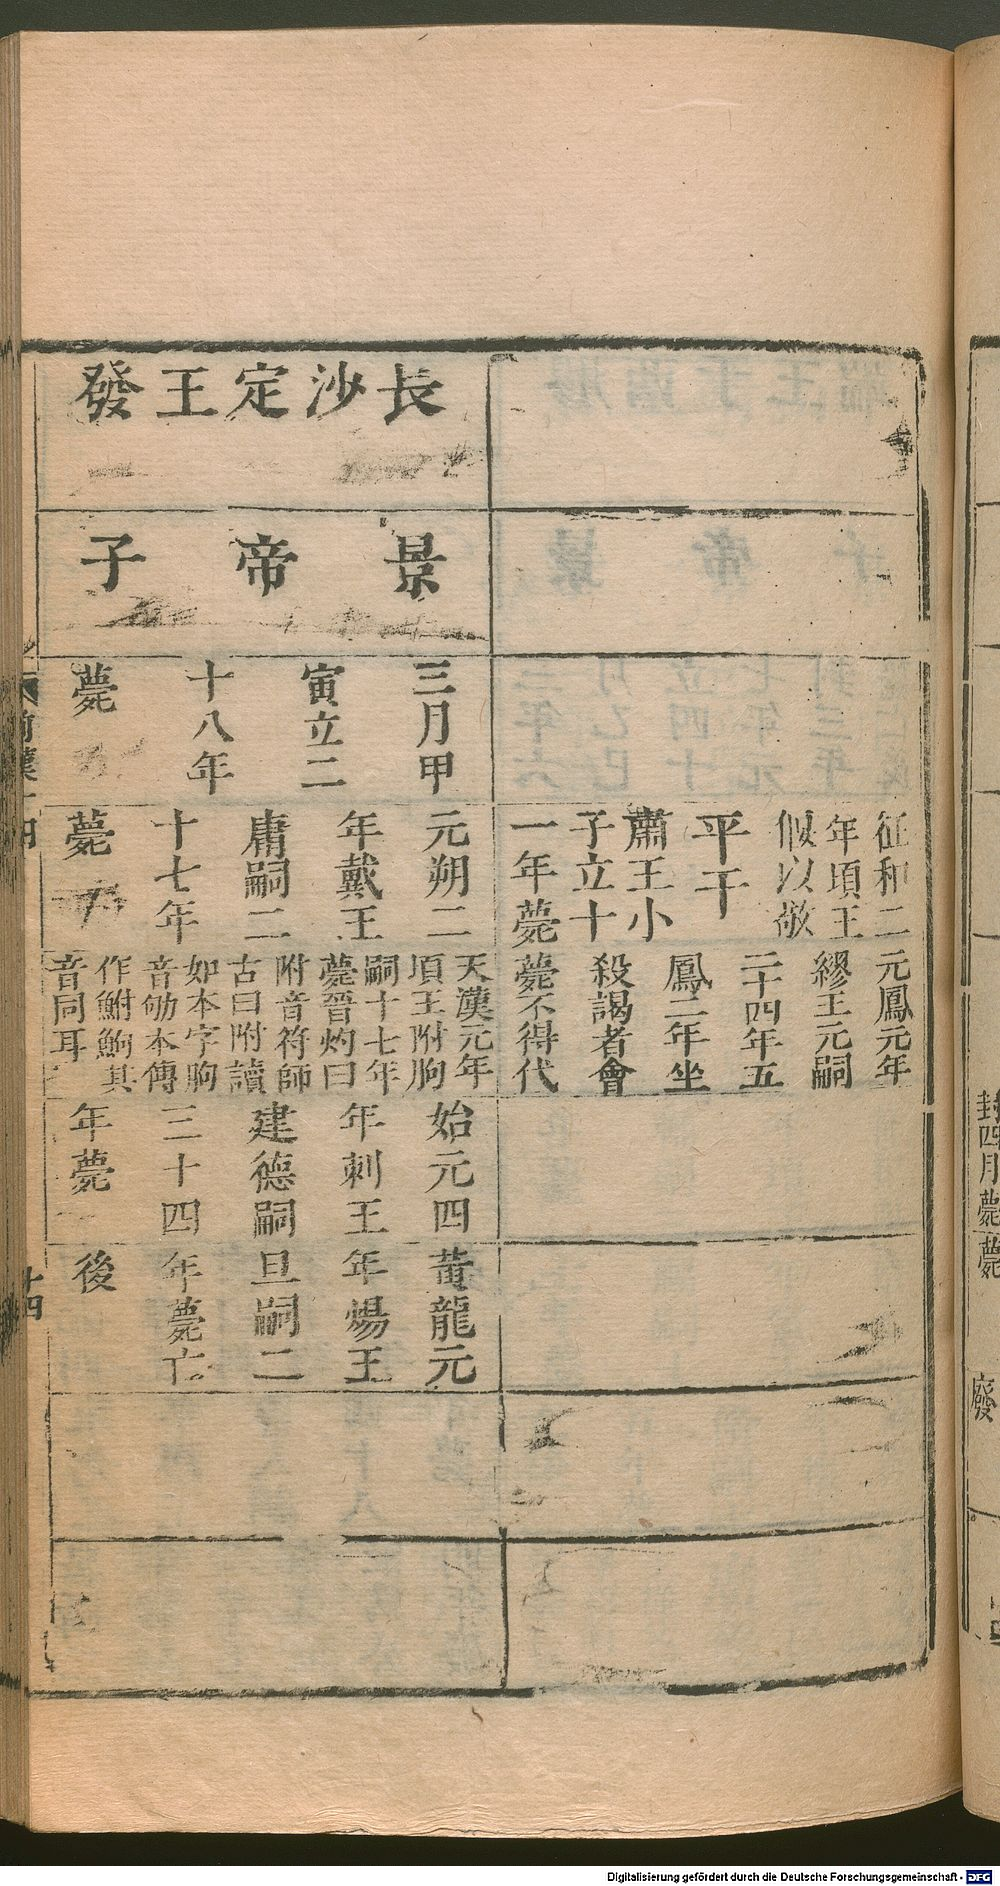 征和二
年頃王
偃以敬
平干
肅王小
子立十
一年薨
元鳳元年
繆王元嗣
二十四年五
鳳二年坐
殺謁者會
薨不得代
長沙定王發
景帝子
三月甲
寅立二
十八年
薨
元朔二
年戴王
庸嗣二
十七年
薨
天漢元年
頃王附朐
嗣十七年
薨晉灼曰
附音符師
古曰附讀
如本字朐
音劬本傳
作鮒鮈其
音同耳
始元四
年剌王
建德嗣
三十四
年薨
黃龍元
年煬王
旦嗣二
年薨亡
後
前漢十四
十四
封四月薨
薨
廢
Digitalisierung gefördert durch die Deutsche Forschungsgemeinschaft - DFG